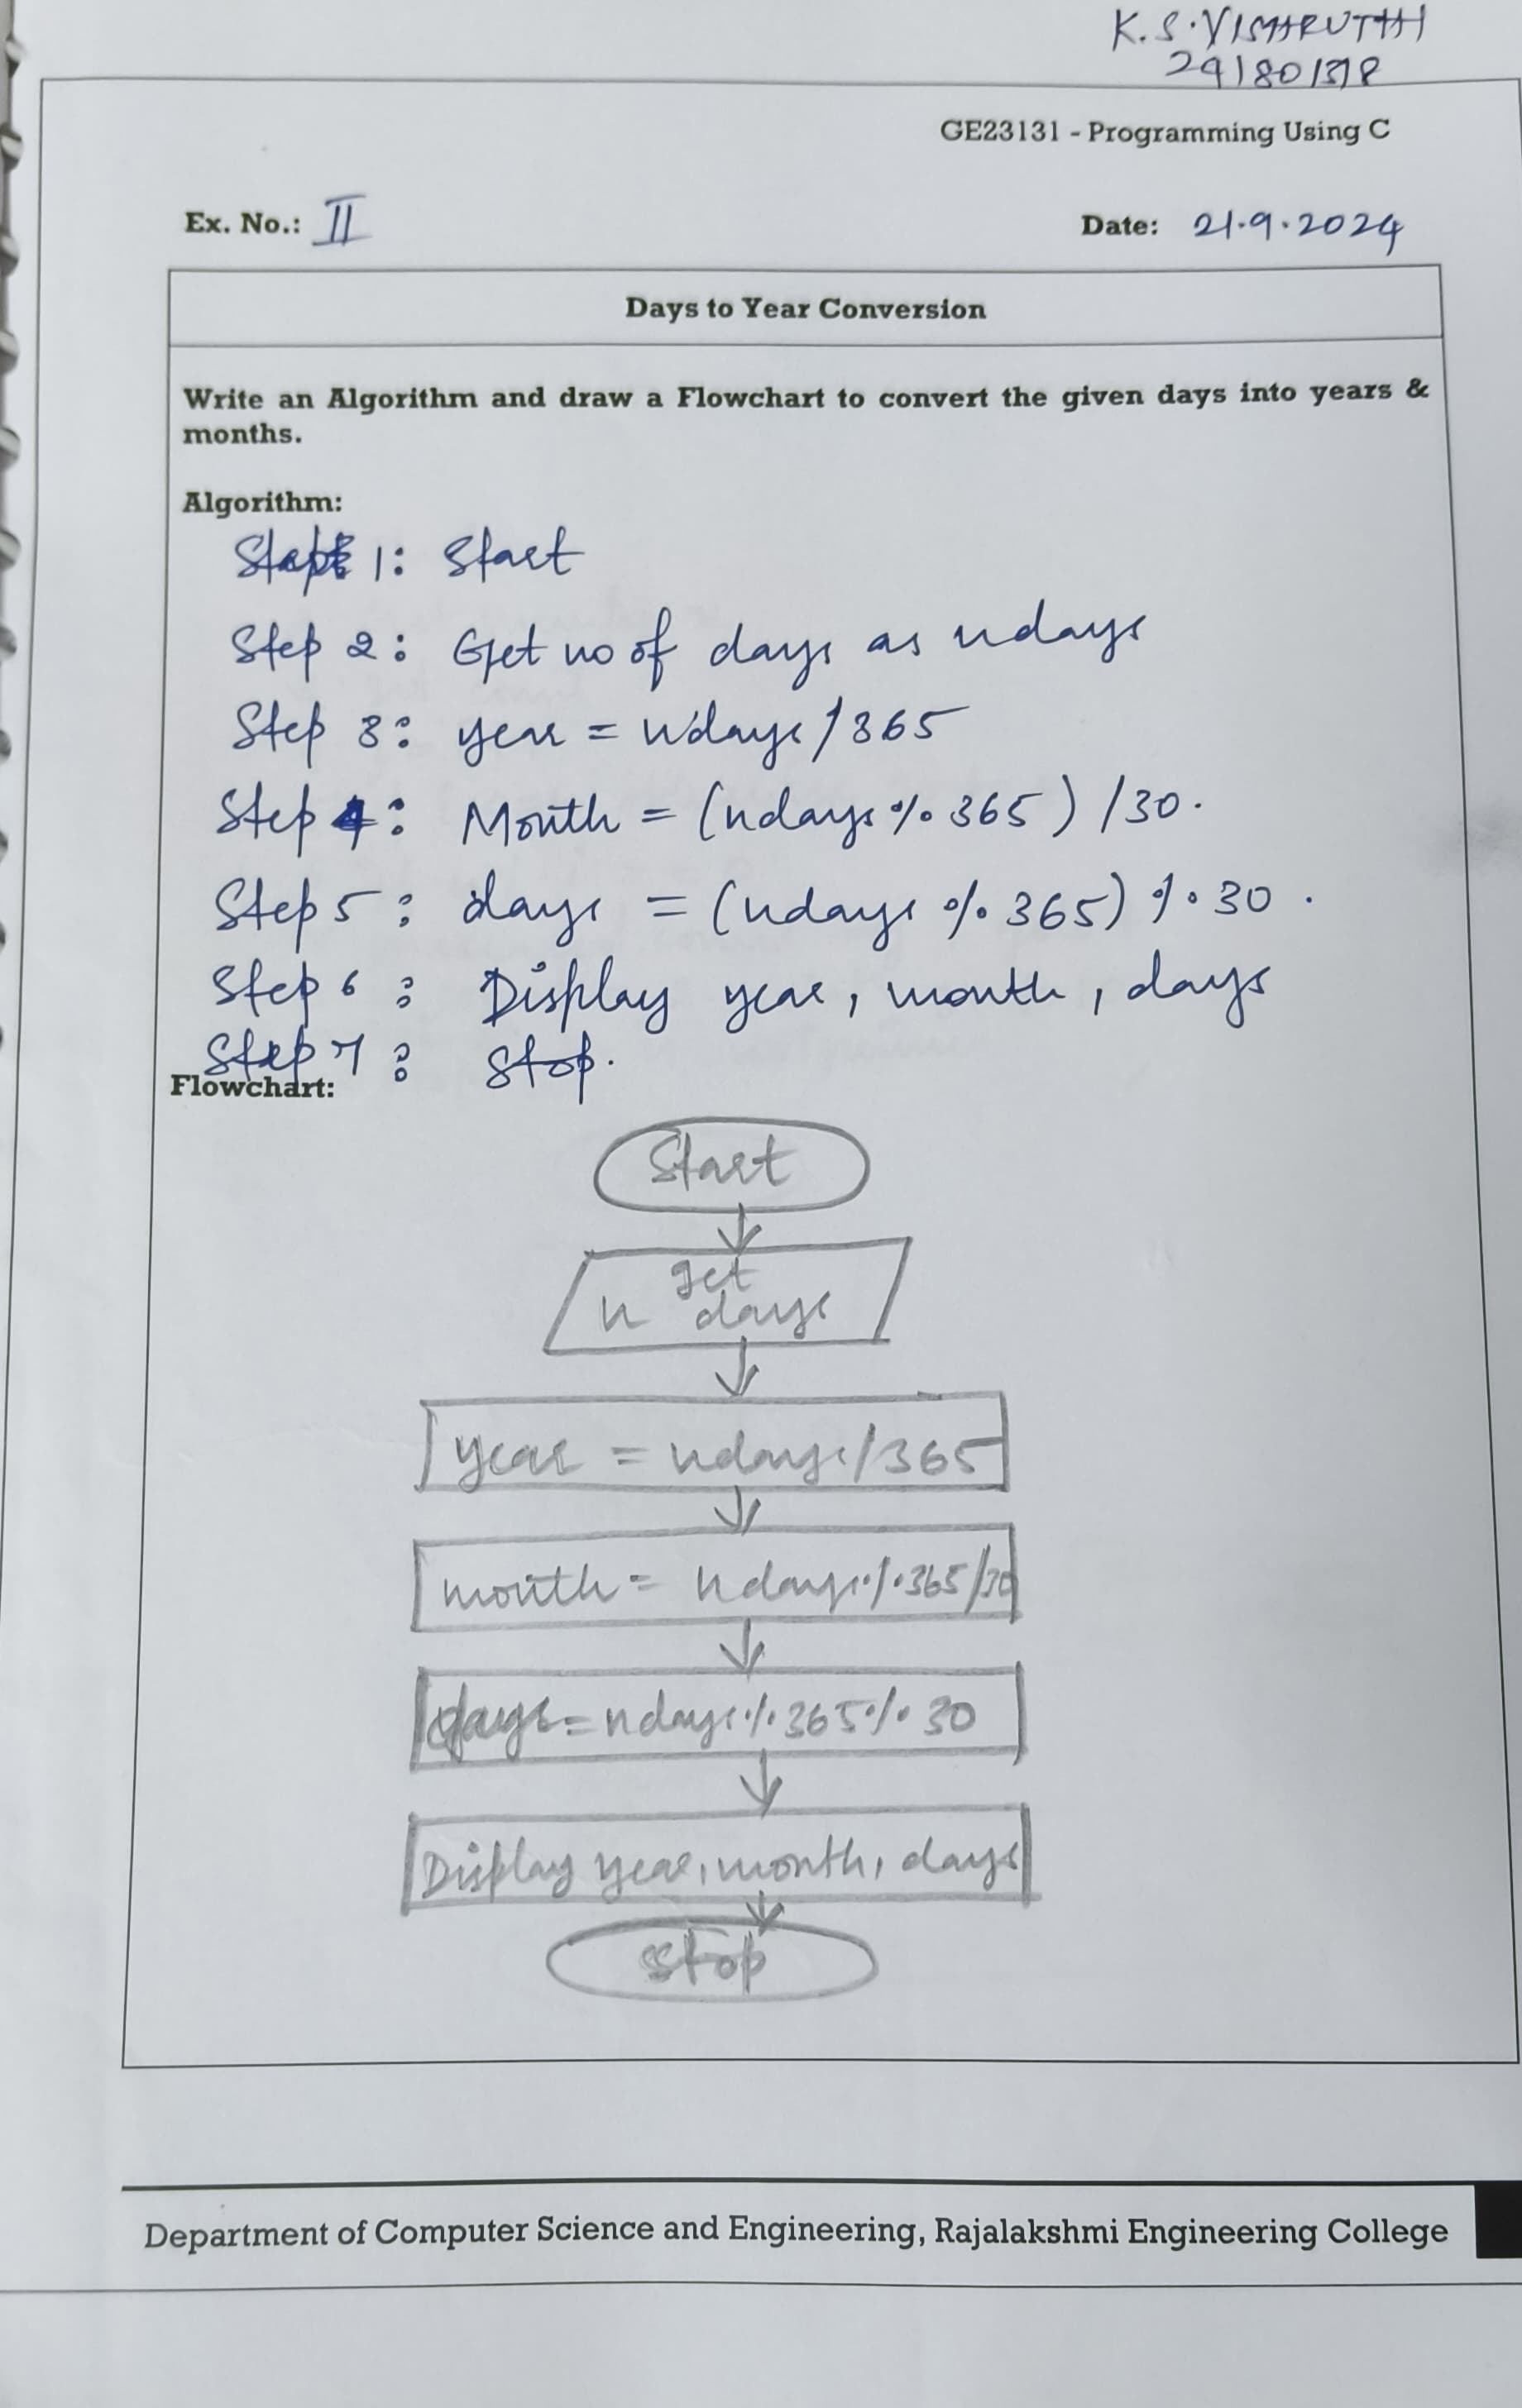 K.S.VISHRUTHI
241801318
GE23131 - Programming Using C
Ex. No.: II
Date: 21.9.2024
Days to Year Conversion
Write an Algorithm and draw a Flowchart to convert the given days into years &
months.
Algorithm:
Step 1: Start
Step 2: Get no of days as ndays
Step 3: year = ndays/365
Step 4: Month = (ndays % 365) /30.
Step 5: days = (ndays % 365) % 30.
Step 6: Display year, month, days
Step 7: Stop.
Flowchart:
Start
get
n days
year = ndays/365
month = ndays%365/30
days = ndays%365%30
Display year, month, days
stop
Department of Computer Science and Engineering, Rajalakshmi Engineering College